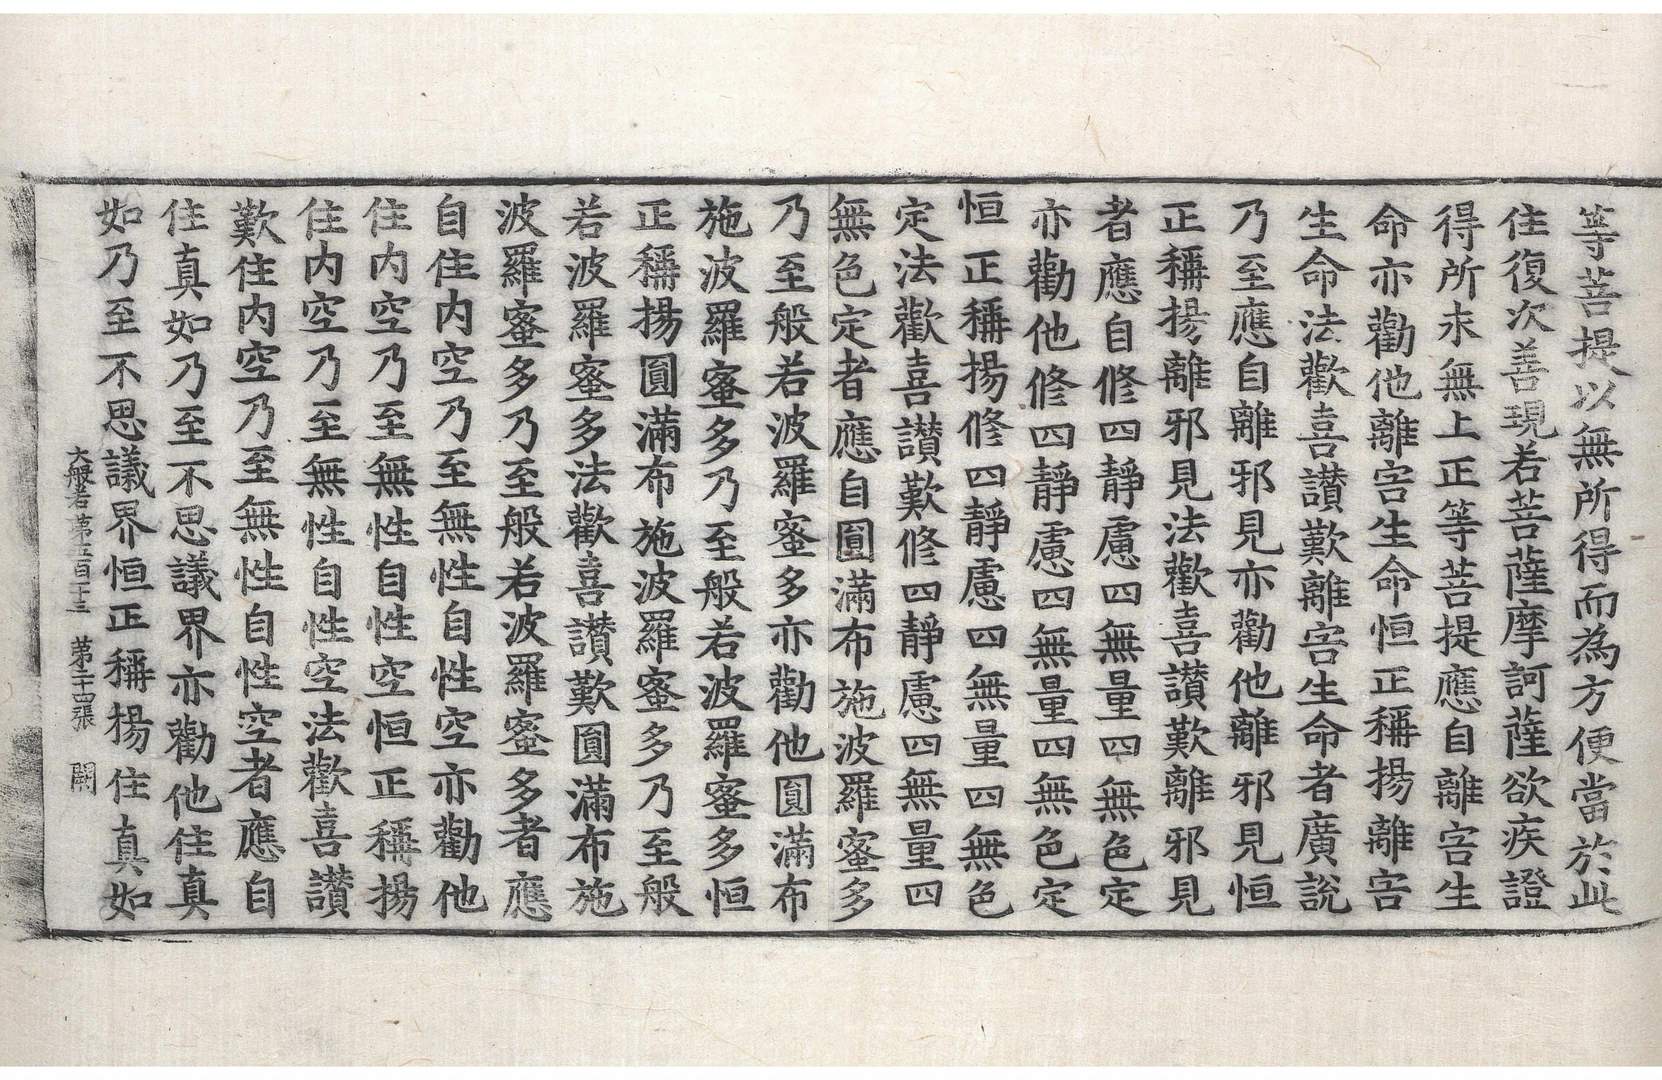 等菩提以無所得而為方便當於此
住復次善現若菩薩摩訶薩欲疾證
得所求無上正等菩提應自離害生
命亦勸他離害生命恒正稱揚離害
生命法歡喜讃歎離害生命者廣說
乃至應自離邪見亦勸他離邪見恒
正稱揚離邪見法歡喜讃歎離邪見
者應自修四靜慮四無量四無色定
亦勸他修四靜慮四無量四無色定
恒正稱揚修四靜慮四無量四無色
定法歡喜讃歎修四靜慮四無量四
無色定者應自圓滿布施波羅蜜多
乃至般若波羅蜜多亦勸他圓滿布
施波羅蜜多乃至般若波羅蜜多恒
正稱揚圓滿布施波羅蜜多乃至般
若波羅蜜多法歡喜讃歎圓滿布施
波羅蜜多乃至般若波羅蜜多者應
自住內空乃至無性自性空亦勸他
住內空乃至無性自性空恒正稱揚
住內空乃至無性自性空法歡喜讃
歎住內空乃至無性自性空者應自
住真如乃至不思議界亦勸他住真
如乃至不思議界恒正稱揚住真如
大般若第五百十三 第二十四張 闕